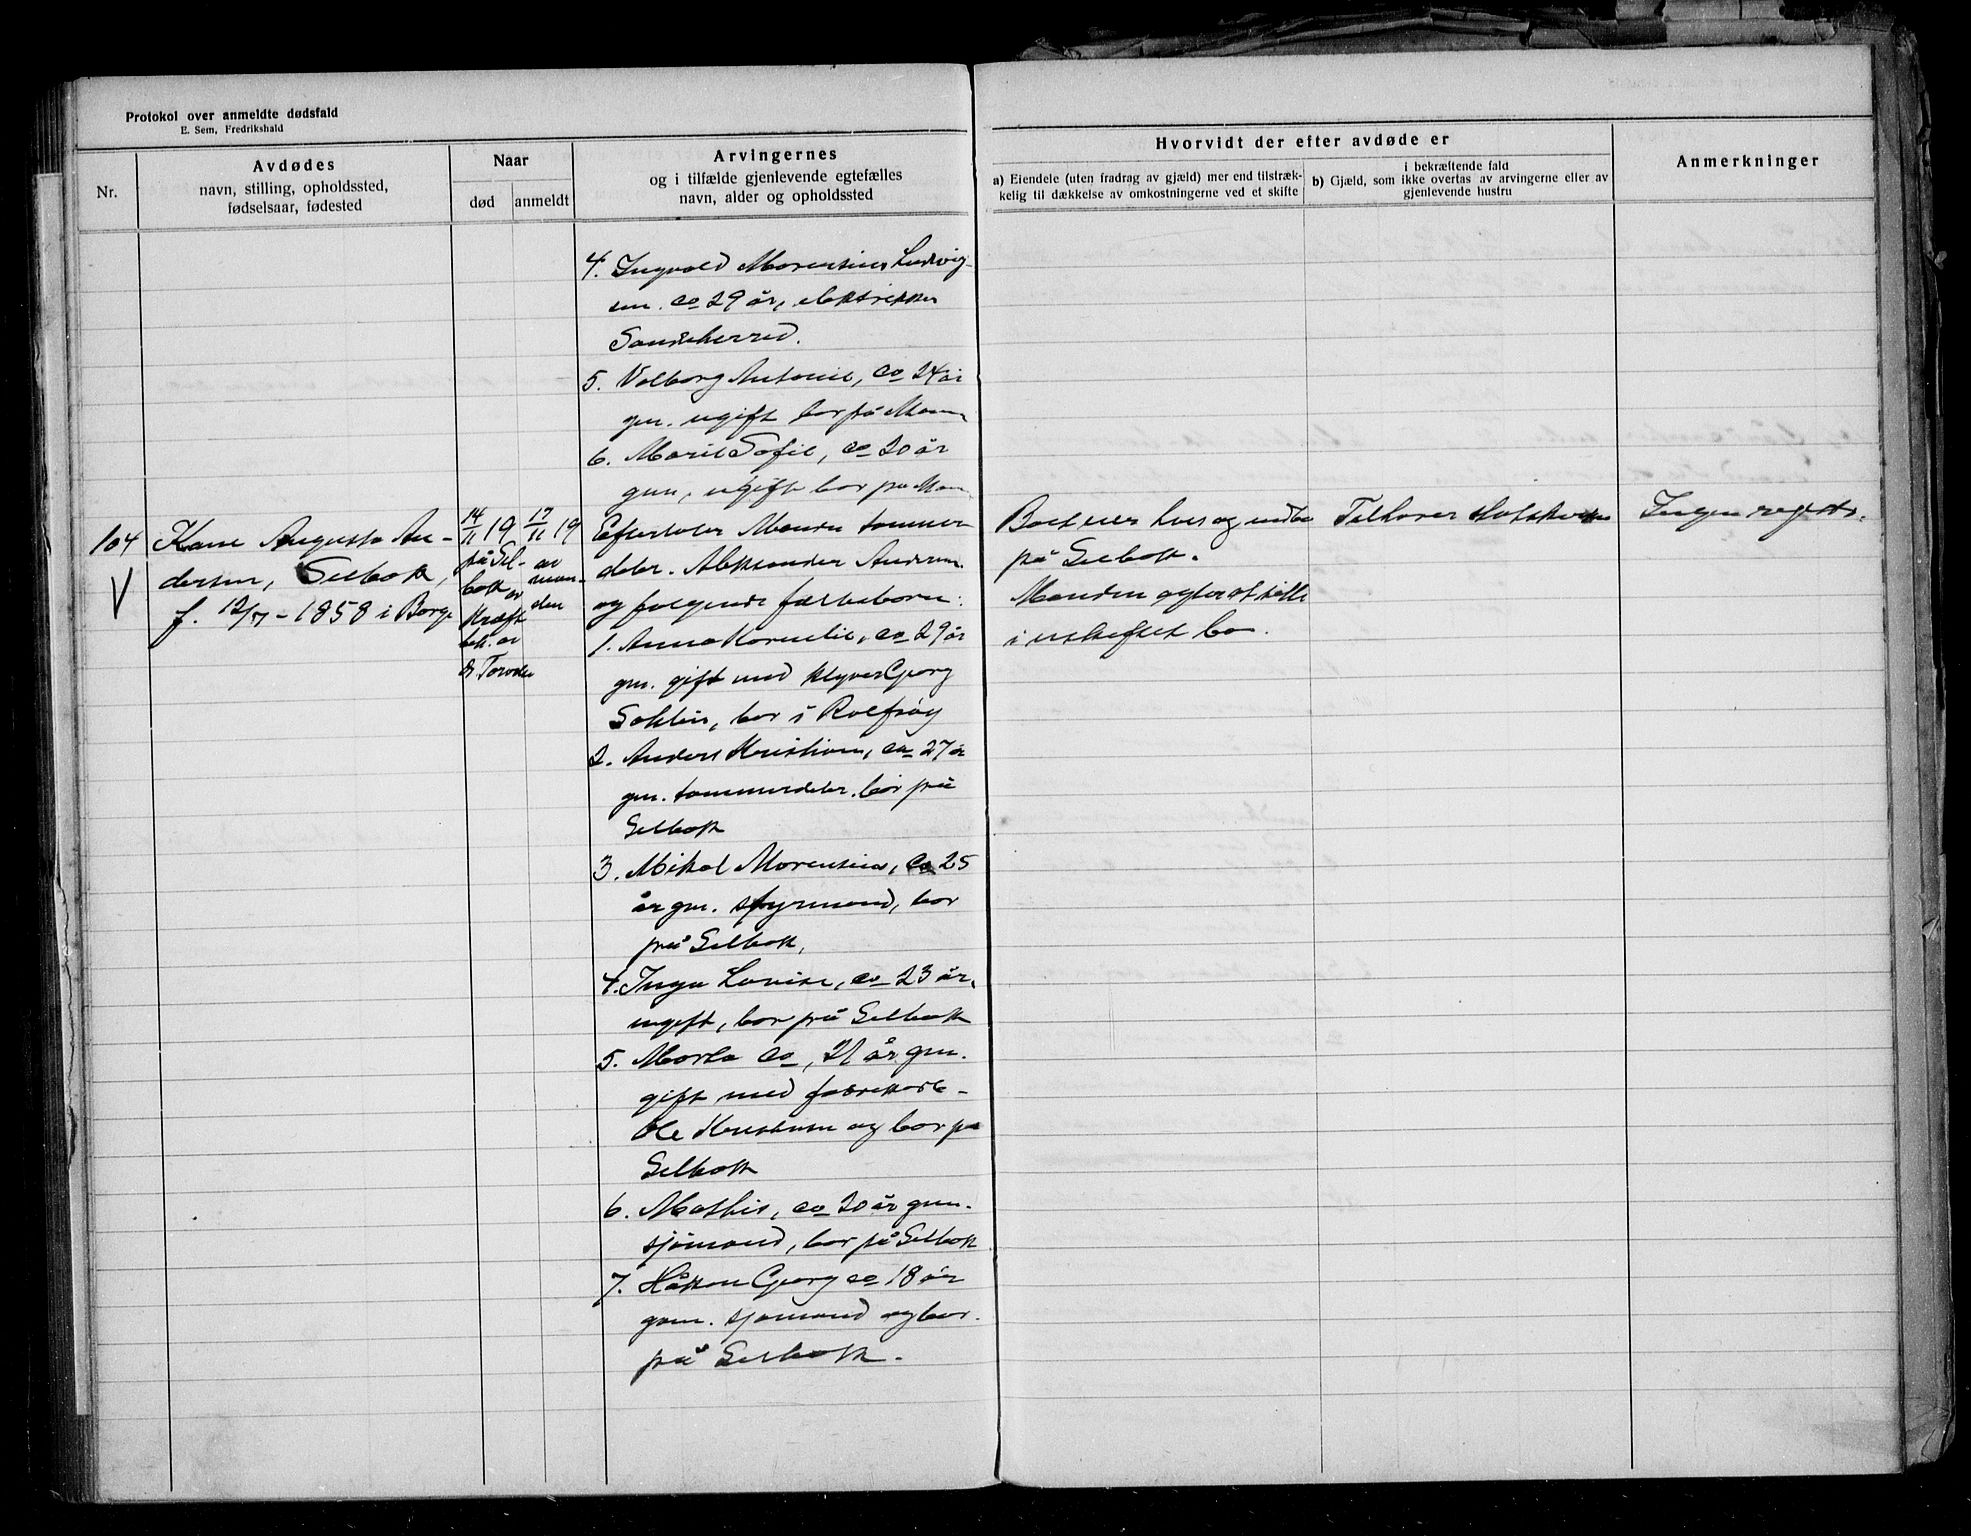 Protokol over anmeldte dødsfald
E. Sem, Fredrikshald
Nr.
Avdødes
navn, stilling, opholdssted,
fødselsaar, fødested
Naar
død
anmeldt
Arvingernes
og i tilfælde gjenlevende egtefælles
navn, alder og opholdssted
Hvorvidt der efter avdøde er
a) Eiendele (uten fradrag av gjæld) mer end tilstræk-
kelig til dækkelse av omkostningerne ved et skifte
i bekræftende fald
b) Gjæld, som ikke overtas av arvingerne eller av
gjenlevende hustru
Anmerkninger
4. Ingvald Morentius Ludvig-
sen. ca 29 år, elektriker
Sandeherred.
5. Valborg Antonie, ca 24 år
gm. ugift bor på
6. Marie Sofie, ca 20 år
gm, ugift bor på
104
V
Karen Augusta An-
dersen, Selbak,
f. 12/ - 1858 i Borge
14/11 19
på Sel-
bak av
Kræft
bek. av
dr. Torvdin
17/11 19
av
man-
den
Efterlater Manden tømmer
deler. Aleksander Andersen
og følgende fællesbørn:
1. Anna Kornelie, ca 29 år
gm. gift med klyver Georg
bor i Rolfsøy
2. Anders Kristian, ca 27 år
gm. tømmerdeler, bor på
Selbak
3. Mikal Morentius, ca 25
år gm. styrmand, bor
på Selbak,
4. Inga Lovise, ca 23 år,
ugift, bor på Selbak
5. Marta ca, 21 år gm.
gift med fabrikarb-
Ole Kristensen og bor på
Selbak
6. Mathis, ca 20 år gm.
sjømand, bor på Selbak
7. Håkon Georg ca 18 år
gm. sjømand og bor.
på Selbak.
Boet eier hus og indbo
på Selbak.
Manden agter at sitte
i uskiftet bo.
Ingen registr.